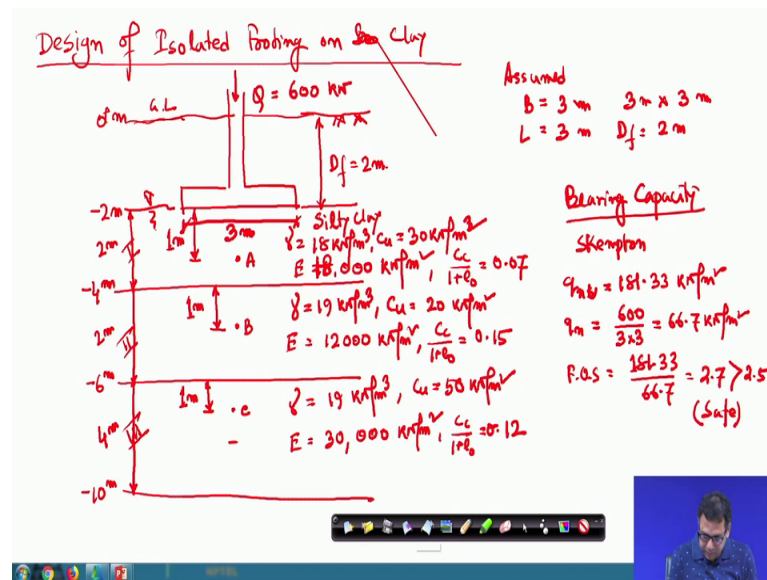 Design of Isolated Footing on Clay
G.L
Q = 600 kN
0 m
Df = 2m
-2m
2m I
1m
3m
Silty Clay
γ = 18 kN/m³, Cu = 30 kN/m²
• A
E = 18,000 kN/m², Cc/1+e0 = 0.07
-4m
2m II
1m
• B
γ = 19 kN/m³, Cu = 20 kN/m²
E = 12000 kN/m², Cc/1+e0 = 0.15
-6m
4m III
1m
• c
γ = 19 kN/m³, Cu = 50 kN/m²
E = 30,000 kN/m², Cc/1+e0 = 0.12
-10m
Assumed
B = 3 m 3m x 3 m
L = 3 m Df = 2 m
Bearing Capacity
Skempton
qnu = 181.33 kN/m²
qn = 600/3x3 = 66.7 kN/m²
F.O.S = 181.33/66.7 = 2.7 > 2.5
(Safe)